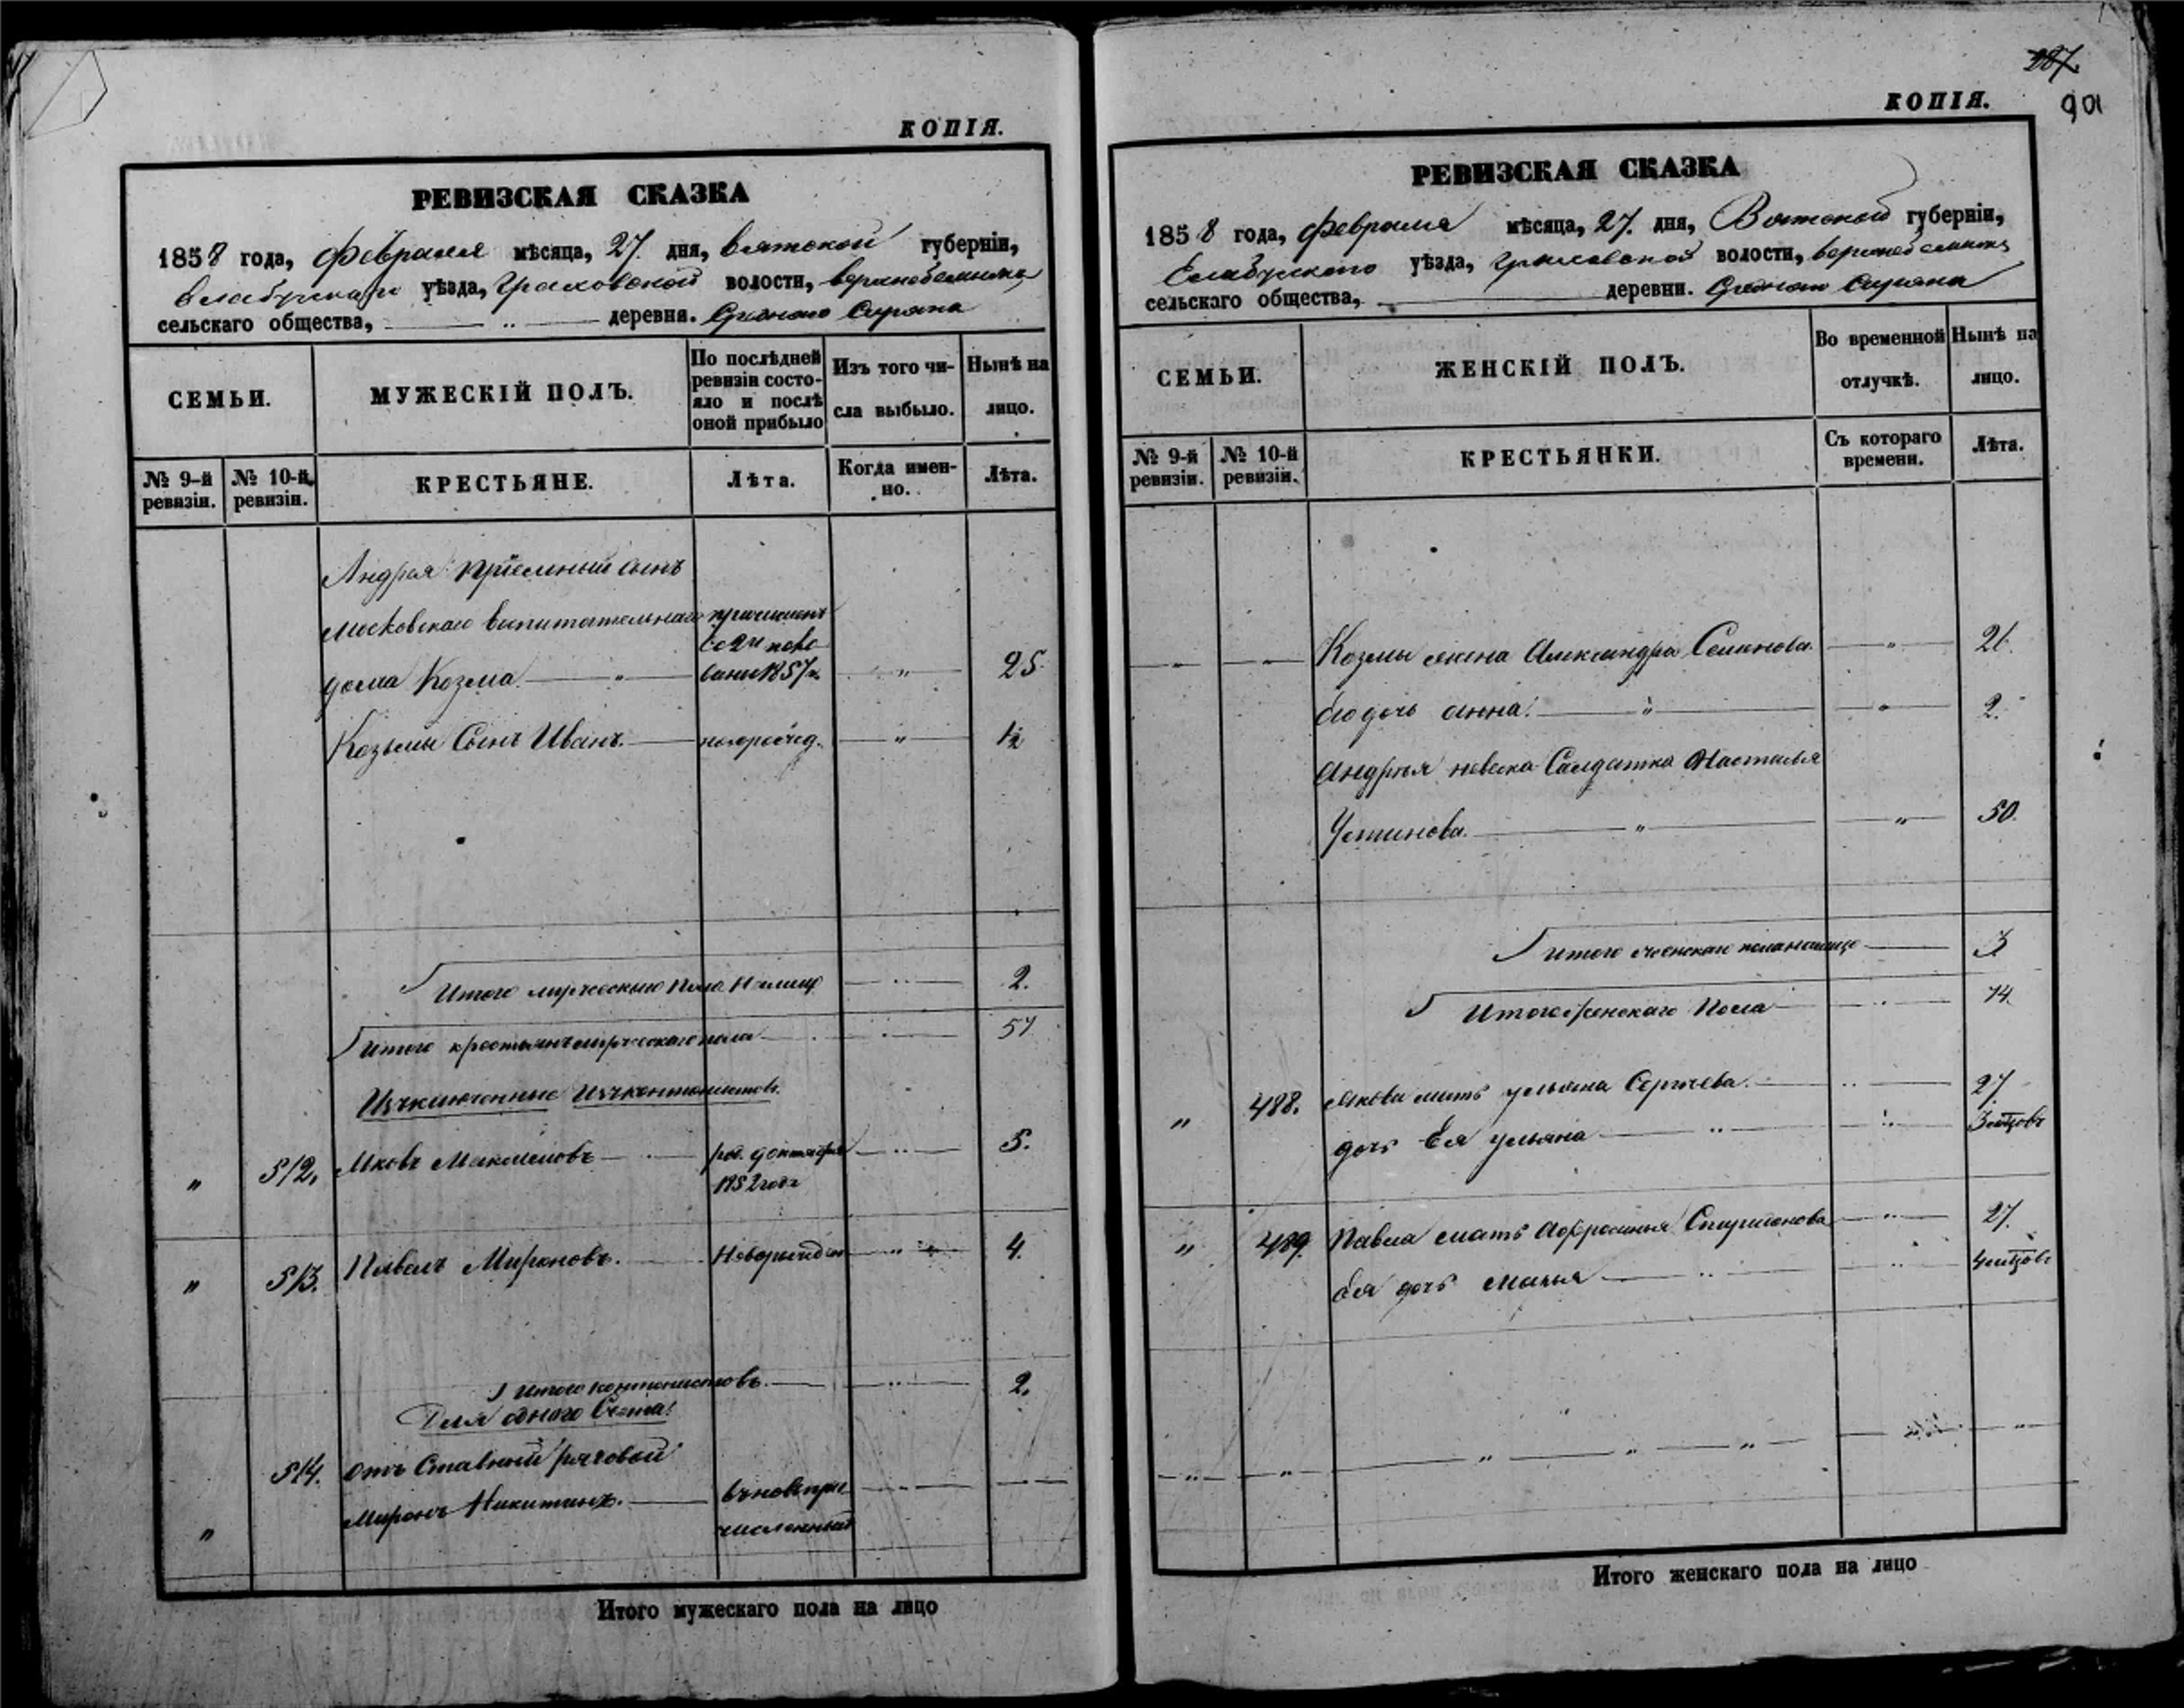 КОПІЯ.
РЕВИЗСКАЯ СКАЗКА
1858 года, февраля мѣсяца, 27. дня, Вятской губерніи,
Елабужскаго уѣзда, Граховской волости,
сельскаго общества, — „ — деревни.
СЕМЬИ.
МУЖЕСКІЙ ПОЛЪ.
По послѣдней ревизіи состояло и послѣ оной прибыло
Изъ того числа выбыло.
Нынѣ на лицо.
№ 9-й ревизіи.
№ 10-й ревизіи.
КРЕСТЬЯНЕ.
Лѣта.
Когда именно.
Лѣта.
Андрея пріемный сынъ
Московскаго Воспитательнаго
дома Козма — „ — 1857 — „ — 25
Козьмы Сынъ Иванъ. — новорожд. — „ — 1/2
Итого мужескаго пола на лицо — „ — 2.
Итого крестьянъ мужескаго пола — 57
Изъключенные Изъ кантонистовъ.
„ 512. Яковъ — род. октября — „ — 5.
1852 года
„ 513. Павелъ Мироновъ. — Новорожден — „ — 4.
Итого кантонистовъ. — „ — 2.
Для одного Счета:
514. Отставной рядовой
„ Миронъ Никитинъ. — вновь при
численный
Итого мужескаго пола на лицо
287.
901
КОПІЯ.
РЕВИЗСКАЯ СКАЗКА
1858 года, февраля мѣсяца, 27. дня, Вятской губерніи,
Елабужскаго уѣзда, Граховской волости,
сельскаго общества, — деревни.
СЕМЬИ.
ЖЕНСКІЙ ПОЛЪ.
Во временной отлучкѣ.
Нынѣ на лицо.
№ 9-й ревизіи.
№ 10-й ревизіи.
КРЕСТЬЯНКИ.
Съ котораго времени.
Лѣта.
— „ — Козмы жена Александра Семенова — „ — 21.
Его дочь Анна. — „ — 2.
Андрея невска Салдатка Настасья
Устинова. — „ — „ — 50.
Итого женскаго пола на лице — 3
Итого женскаго Пола — „ — 74.
„ 488. Якова мать Ульяна Сергѣева. — „ — 27.
дочь Ея Ульяна — „ — 3
„ 489. Павла мать — „ — 27.
Ея дочь Марья — „ — 4
Итого женскаго пола на лицо